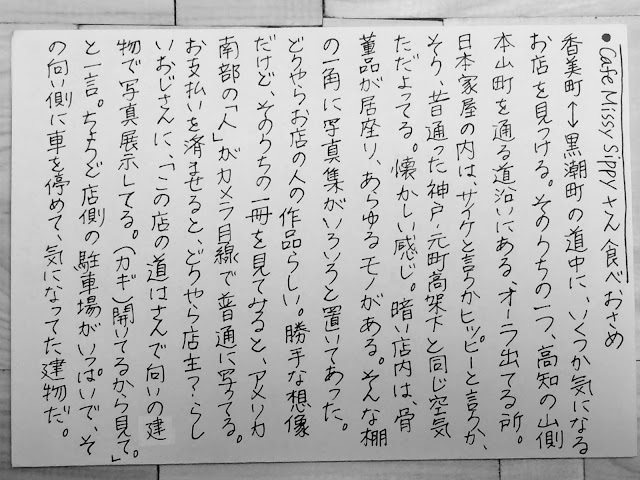 ●Cafe Missy Sippyさん 食べおさめ
香美町↔黒潮町の道中に、いくつか気になる
お店を見つける。そのうちの一つ、高知の山側
本山町を通る道沿いにある、オーラ出てる所。
日本家屋の内は、サイケと言うかヒッピーと言うか、
そう、昔通った神戸・元町高架下と同じ空気
ただよってる。懐かしい感じ。暗い店内は、骨
董品が居座り、あらゆるモノがある。そんな棚
の一角に写真集がいろいろと置いてあった。
どうやらお店の人の作品らしい。勝手な想像
だけど、そのうちの一冊を見てみると、アメリカ
南部の「人」がカメラ目線で普通に写ってる。
お支払いを済ませると、どうやら店主?らし
いおじさんに、「この店の道はさんで向いの建
物で写真展示してる。(カギ)開いてるから見て。」
と一言。ちょうど店側の駐車場がいっぱいで、そ
の向い側に車を停めて、気になってた建物だ。